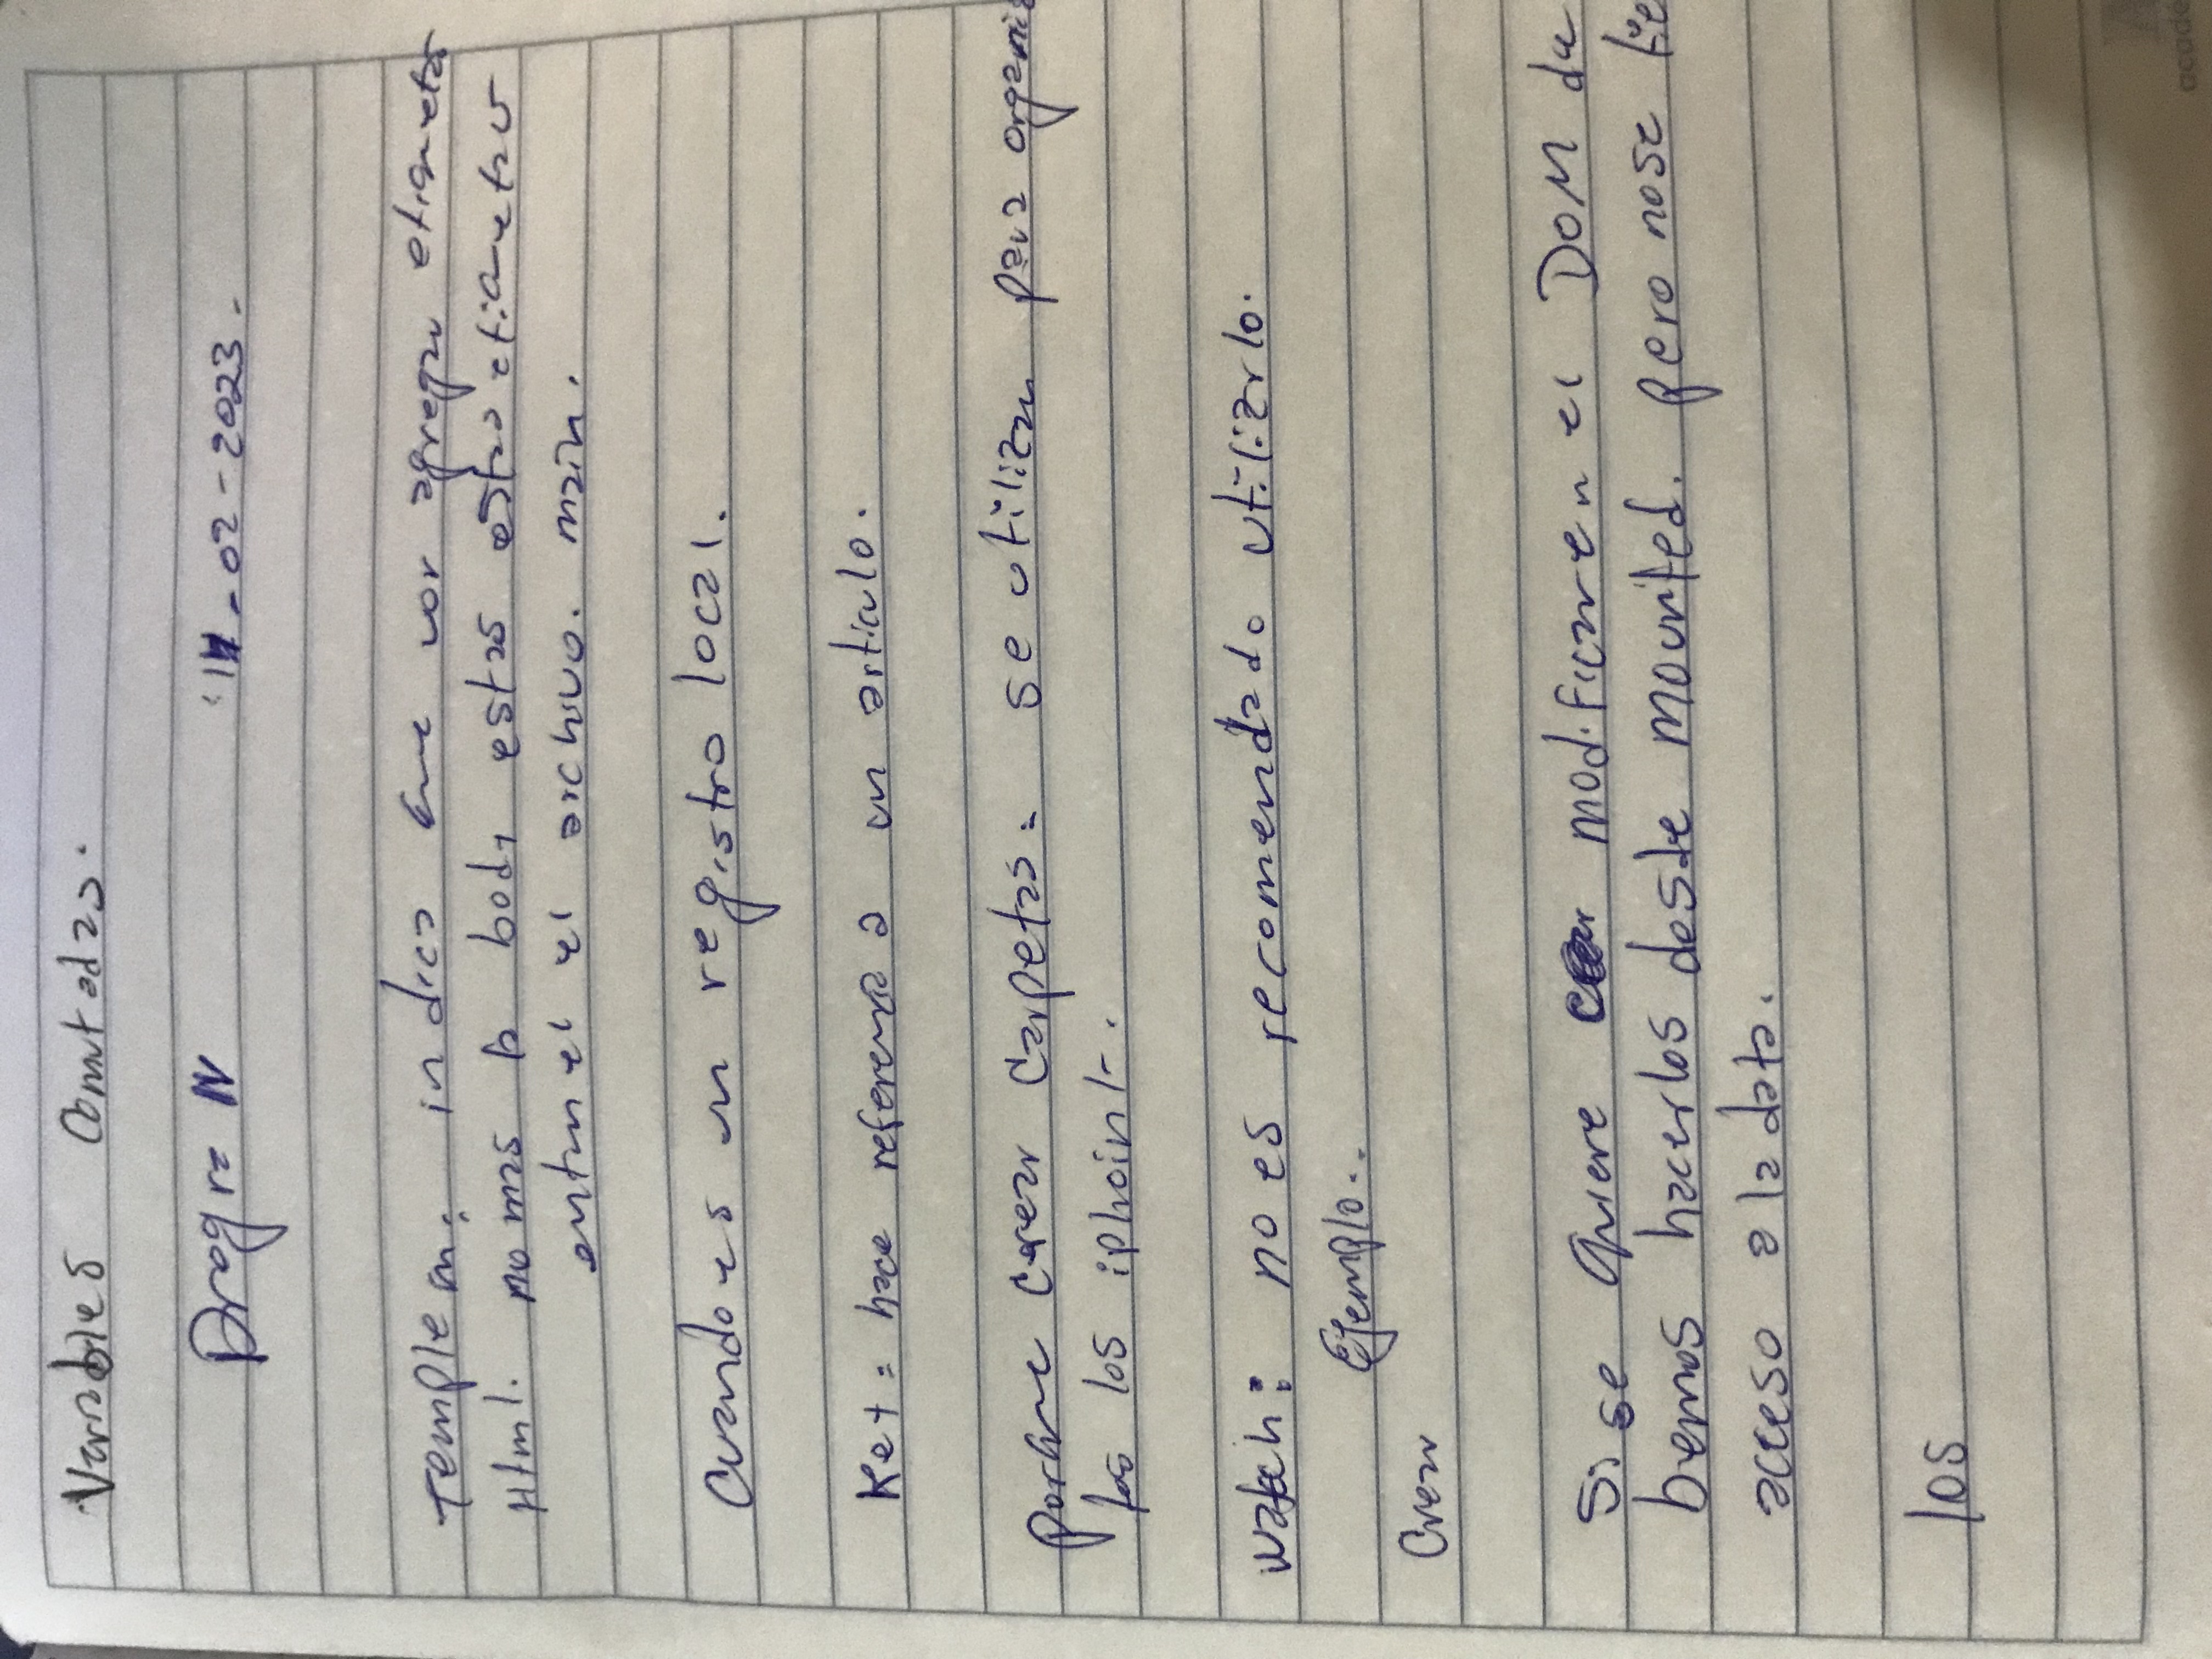 Variables Comutadas.
Progra IV 14-02-2023.
Templem: indica que voy agregar etiquetas
Html. no mas la body estas estas etiquetas
entan el el archivo. main.
Cuando es un registro local.
Ket = hace referencia a un articulo.
porque crear carpetas = se utilizan para organiz
las los iphoint.
Watch: no es recomendado utilizrlo.
Ejemplo..
Crear
Si se quiere modificar en el DOM de
bemos hacerlos desde mounted. pero no se tie
acceso a la data.
los
acade